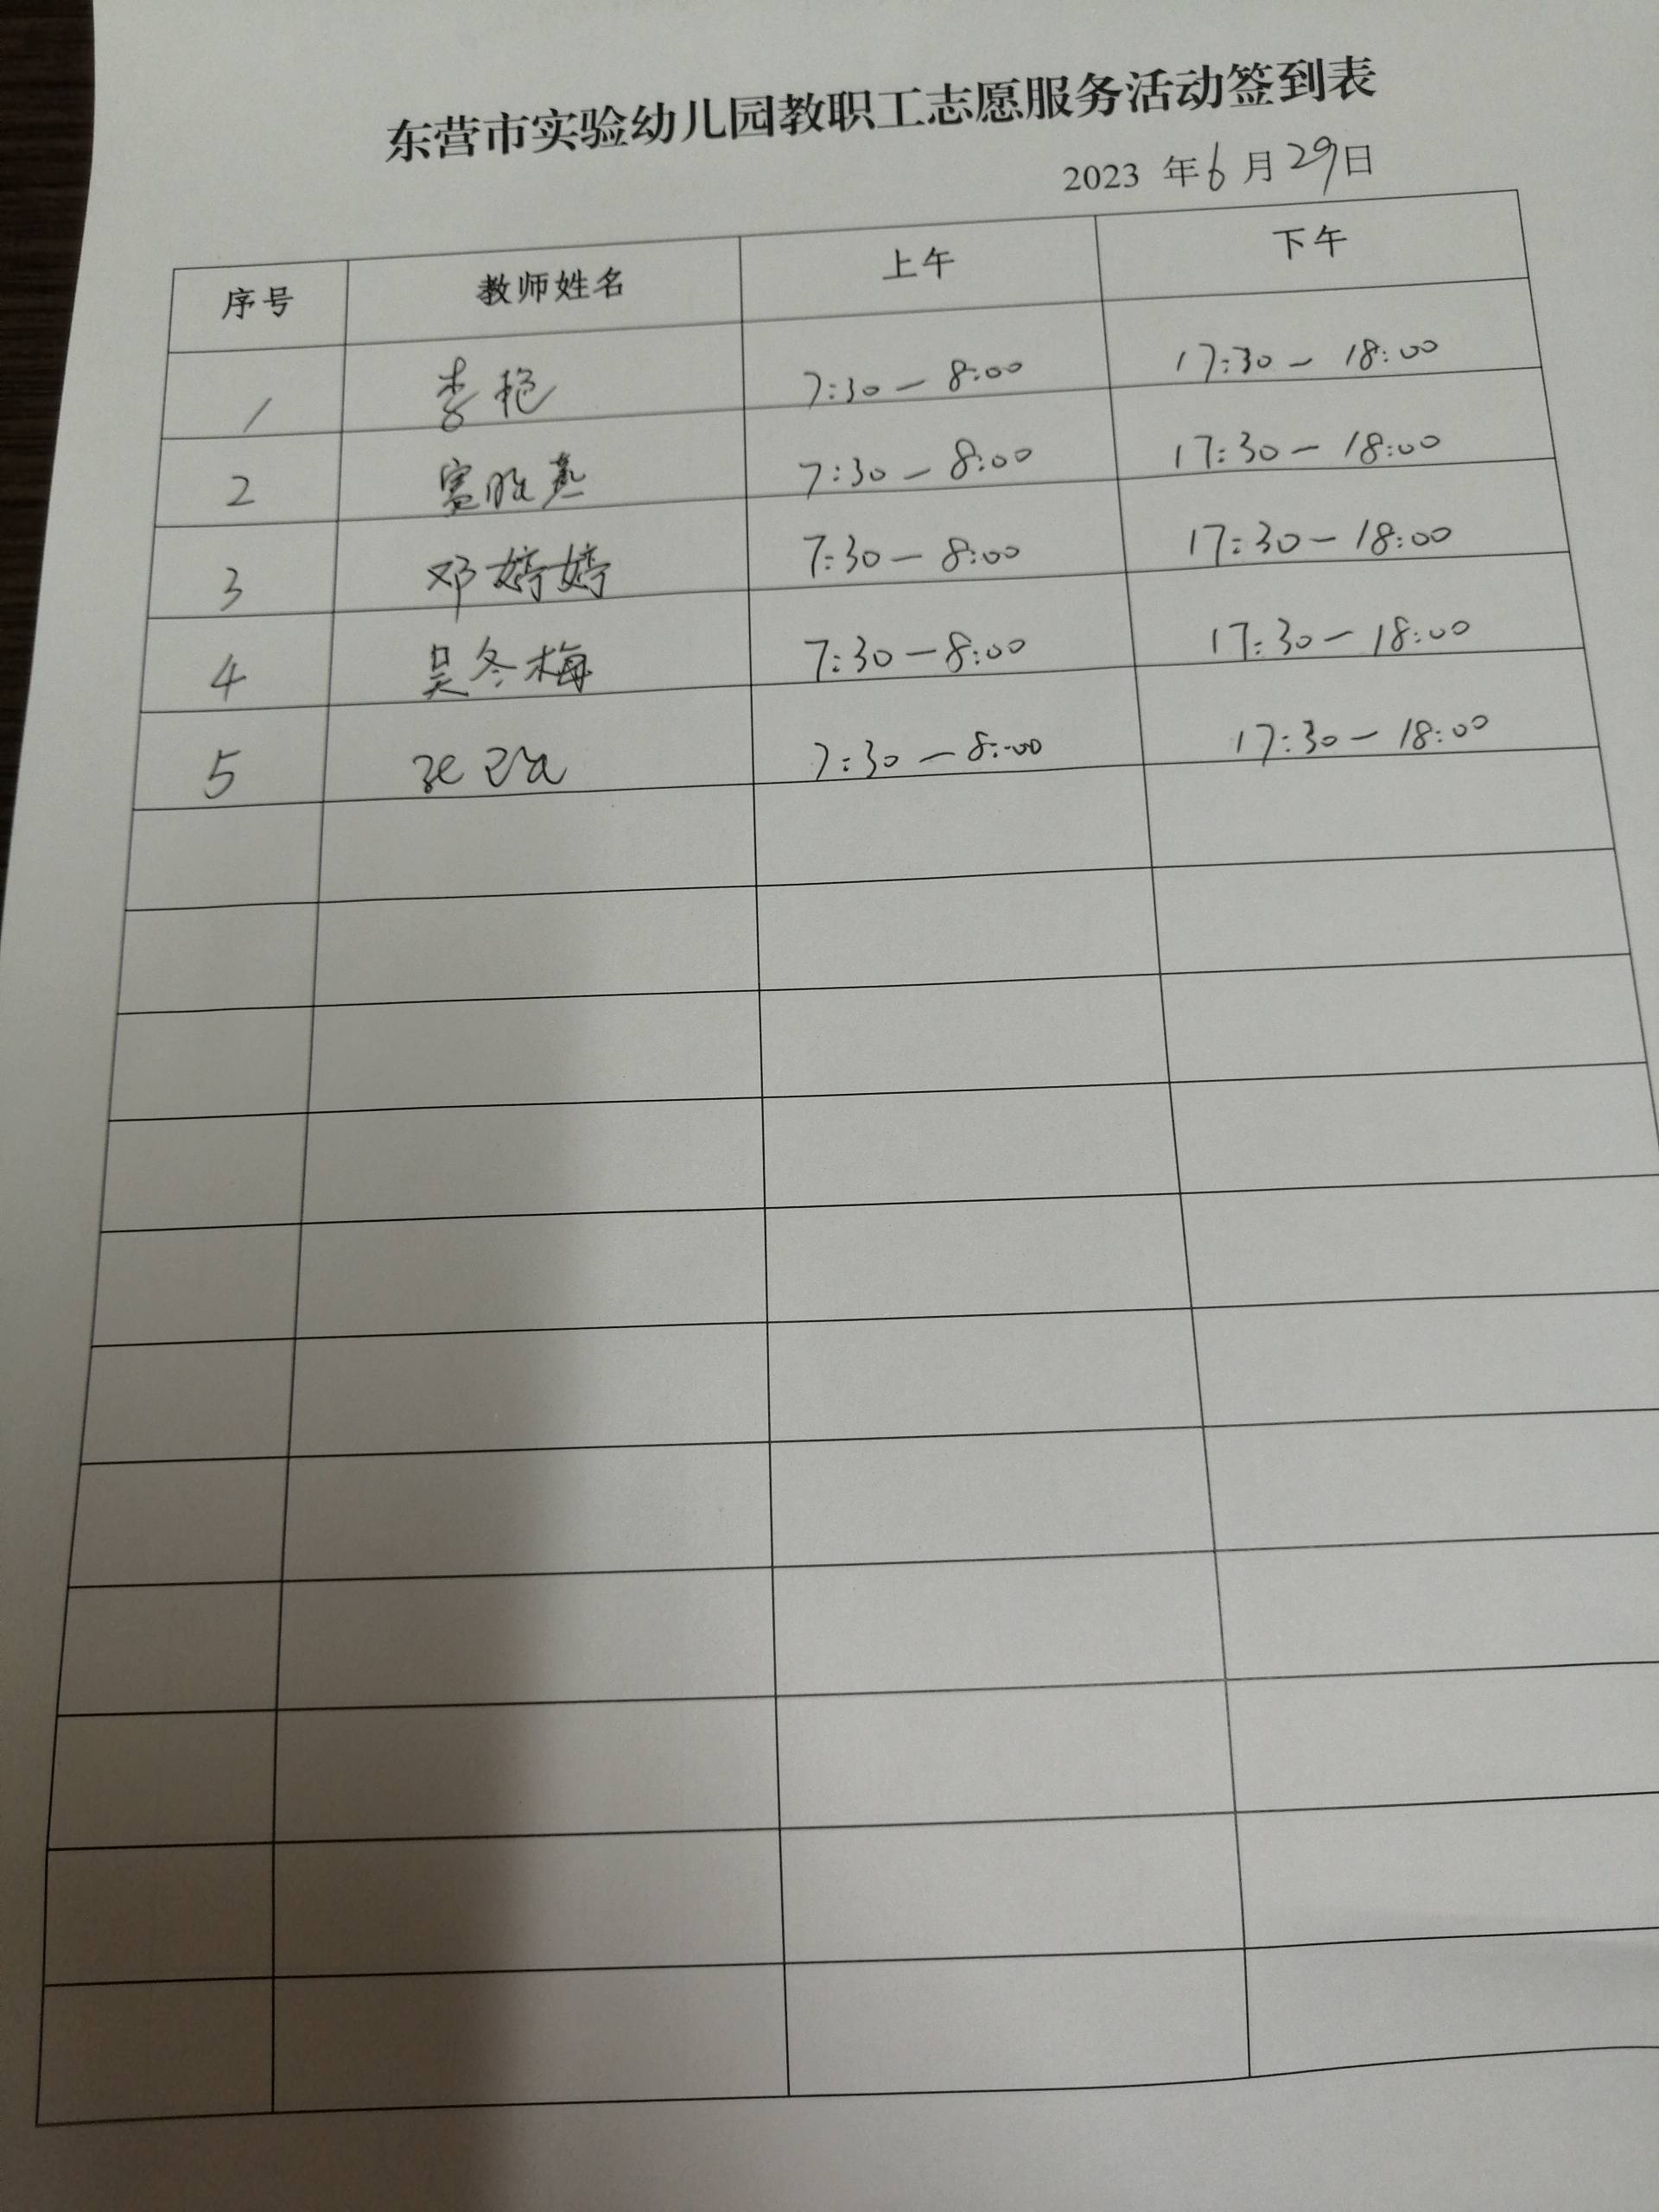 东营市实验幼儿园教职工志愿服务活动签到表
2023 年 6 月 29 日
序号 教师姓名 上午 下午
1 李艳 7:30 — 8:00 17:30 — 18:00
2 7:30 — 8:00 17:30 — 18:00
3 邓婷婷 7:30 — 8:00 17:30 — 18:00
4 吴冬梅 7:30 — 8:00 17:30 — 18:00
5 7:30 — 8:00 17:30 — 18:00